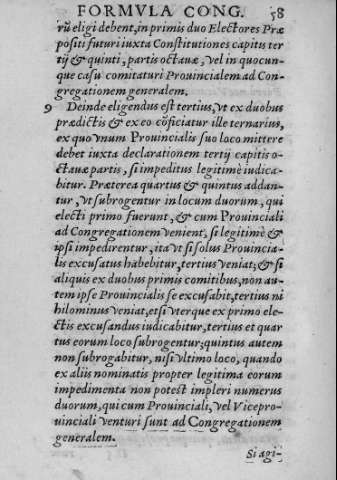 FORMVLA CONG. 58
rũ eligi debent, in primis duo Electores Præ
positi futuri iuxta Constitutiones capitus ter
tij & quinti, partis octauæ, vel in quocun-
que casu comitaturi Prouincialem ad Con-
gregationem generalem.
9 Deinde eligendus est tertius, vt ex duobus
prædictis & ex eo cõficiatur ille ternarius,
ex quo vnum Prouincialis suo loco mittere
debet iuxta declarationem tertij capitis o-
ctauæ partis, si impeditus legitimè iudica-
bitur. Præterea quartus & quintus addan-
tur, vt subrogentur in locum duorum, qui
electi primo fuerunt, & cum Prouinciali
ad Congregationem venient, si legitimè &
ipsi impedirentur, ita vt si solus Prouincia-
lis excusatus habebitur, tertius veniat; & si
aliquis ex duobus primis comitibus, non au-
tem ipse Prouincialis se excusabit, tertius ni
hilominus veniat, et si vterque ex primo ele-
ctis excusandus iudicabitur, tertius et quar
tus eorum loco subrogentur; quintus autem
non subrogabitur, nisi vltimo loco, quando
ex aliis nominatis propter legitima eorum
impedimenta non potest impleri numerus
duorum, qui cum Prouinciali, vel Vicepro-
uinciali venturi sunt ad Congregationem
generalem.
Si agi-